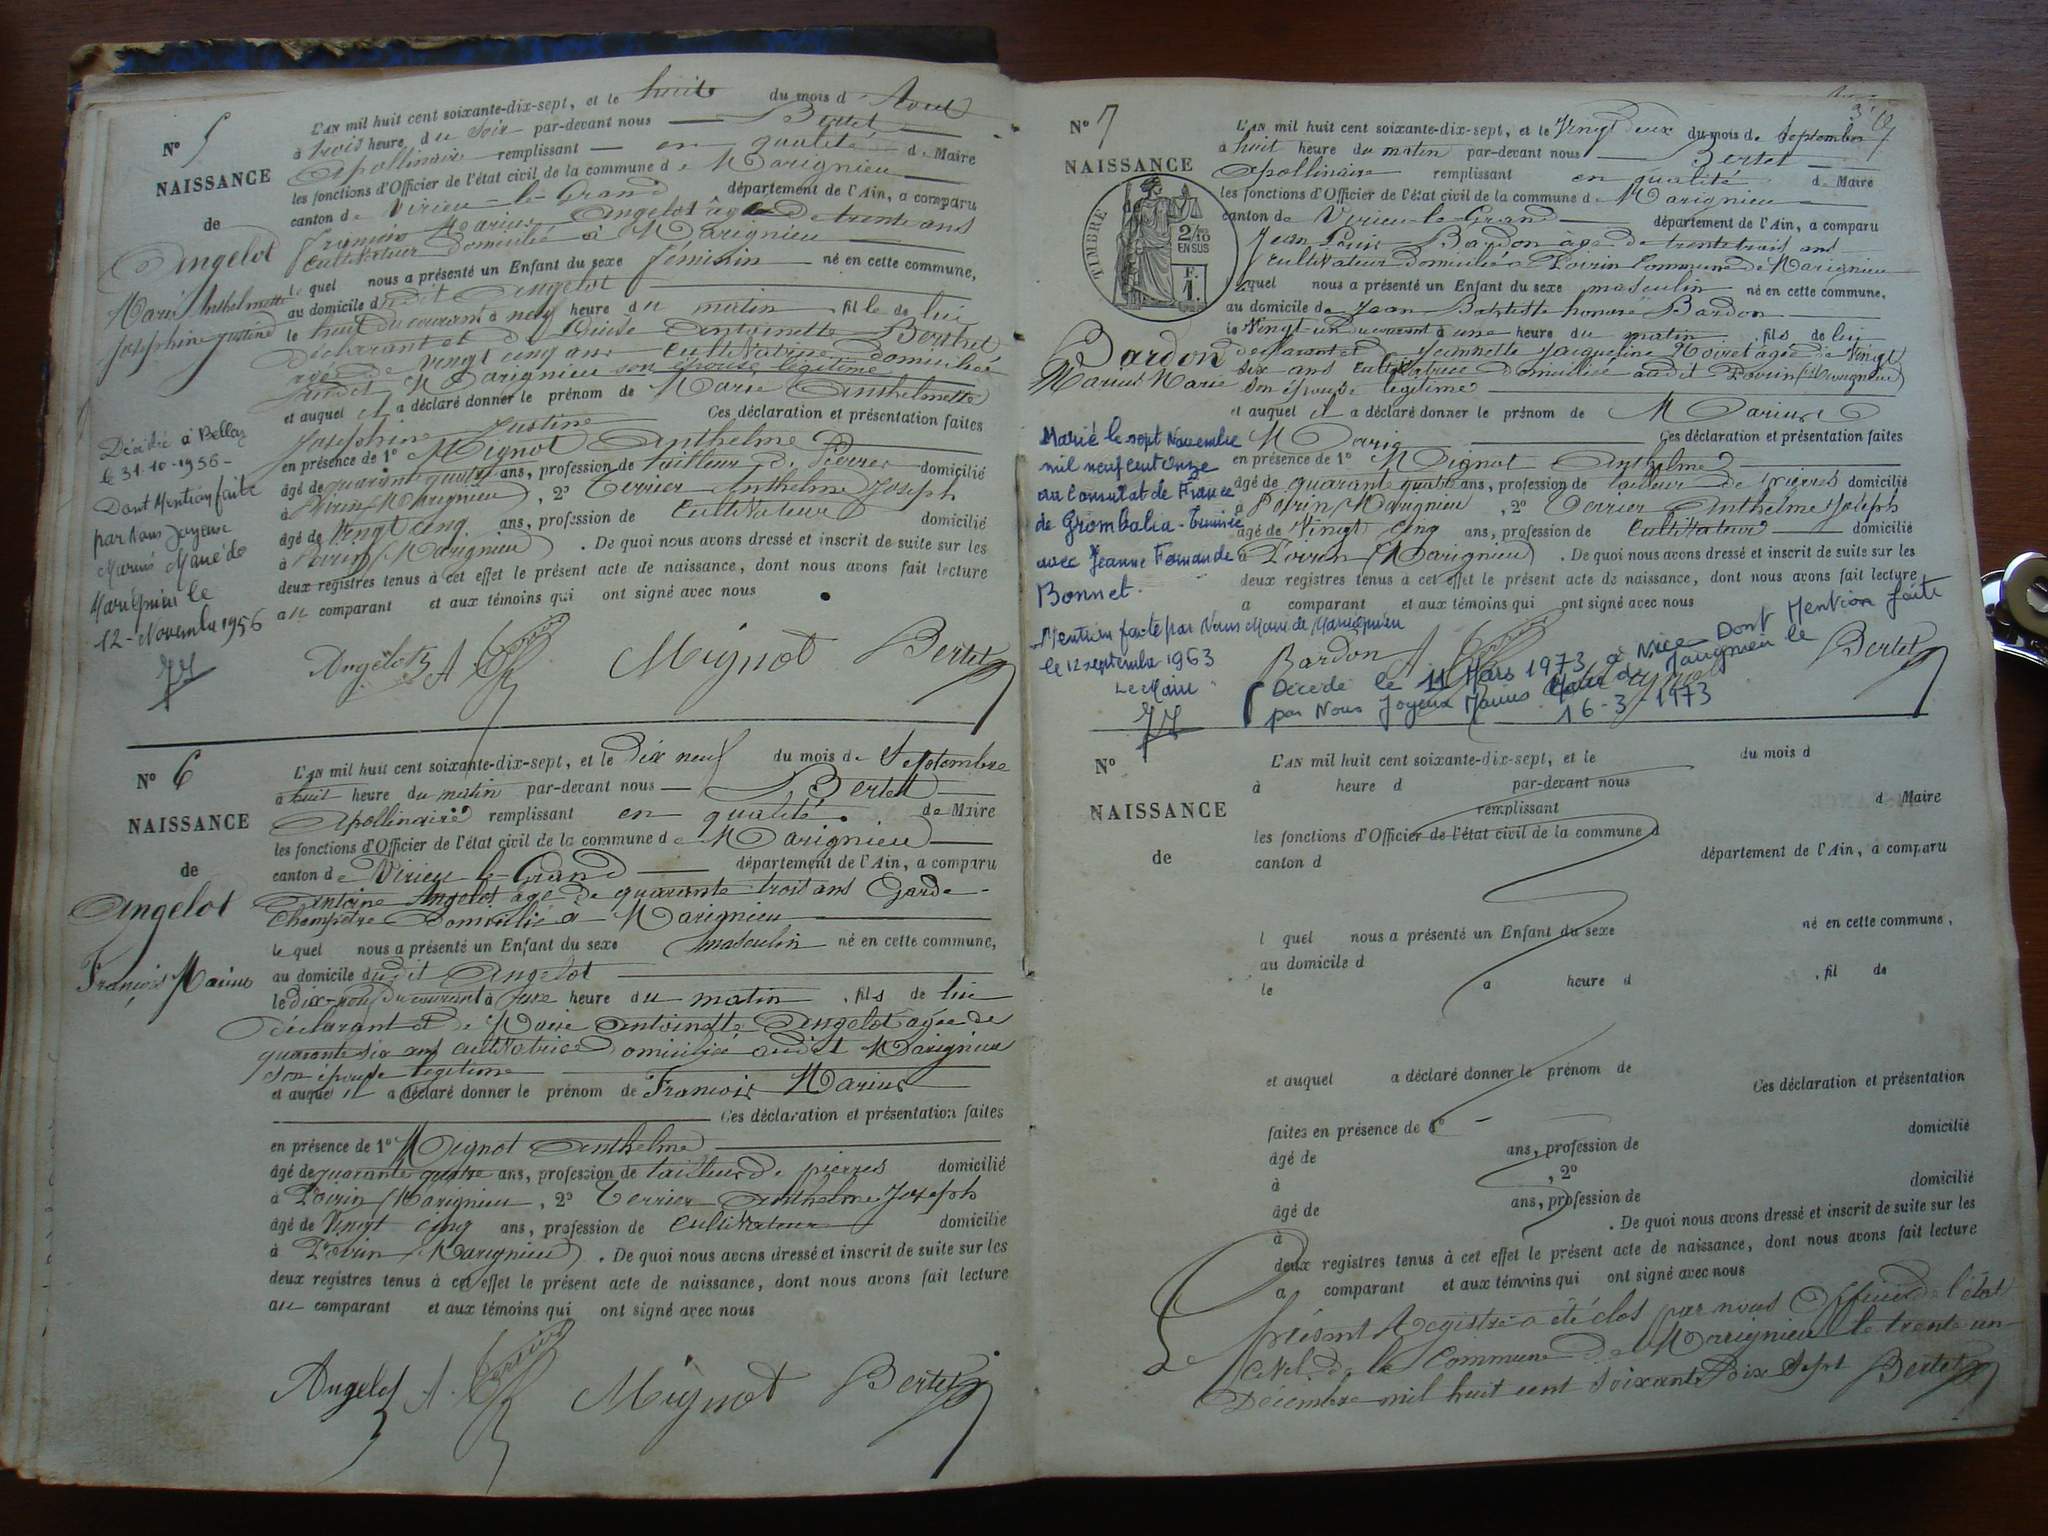 N° 5
NAISSANCE
de
Angelot
Marie Anthelmette
Joséphine Justine
L'AN mil huit cent soixante-dix-sept, et le huit du mois d'Aout
à trois heure du soir par-devant nous Bertet
Apollinaire remplissant en qualité de Maire
les fonctions d'Officier de l'état civil de la commune de Marignieu
canton de Virieu-le-Grand département de l'Ain, a comparu
François Marius Angelot âgé de trente ans
cultivateur domicilié à Marignieu
lequel nous a présenté un Enfant du sexe féminin né en cette commune,
au domicile dudit Angelot
le huit du courant à neuf heure du matin fille de lui
déclarant et de Louise Antoinette Berthet
agée de vingt cinq ans cultivatrice domiciliée
audit Marignieu son épouse légitime
et auquel il a déclaré donner le prénom de Marie Anthelmette
Joséphine Justine Ces déclaration et présentation faites
en présence de 1° Mignot Anthelme
âgé de quarante quatre ans, profession de tailleur de Pierres domicilié
à Poirin (Marignieu), 2° Terrier Anthelme Joseph
âgé de Vingt cinq ans, profession de cultivateur domicilié
à Poirin (Marignieu). De quoi nous avons dressé et inscrit de suite sur les
deux registres tenus à cet effet le présent acte de naissance, dont nous avons fait lecture
au comparant et aux témoins qui ont signé avec nous
Angelot A Terrier Mignot Bertet
Décédée à Belley
le 31-10-1956-
Dont Mention faite
par Nous Joyeux
Marius Maire de
Marignieu le
12-Novembre 1956
N° 6
NAISSANCE
de
Angelot
François Marius
L'AN mil huit cent soixante-dix-sept, et le dix neuf du mois de Septembre
à huit heure du matin par-devant nous Bertet
Apollinaire remplissant en qualité de Maire
les fonctions d'Officier de l'état civil de la commune de Marignieu
canton de Virieu-le-Grand département de l'Ain, a comparu
Antoine Angelot âgé de quarante trois ans Garde-
Champetre Domicilié a Marignieu
lequel nous a présenté un Enfant du sexe masculin né en cette commune,
au domicile dudit Angelot
le dix-neuf du courant à une heure du matin, fils de lui
déclarant et de Marie Antoinette Angelot agée de
quarante six ans cultivatrice Domiciliée audit Marignieu
son épouse légitime
et auquel il a déclaré donner le prénom de François Marius
Ces déclaration et présentation faites
en présence de 1° Mignot Anthelme
âgé de quarante quatre ans, profession de tailleur de pierres domicilié
à Poirin (Marignieu, 2° Terrier Anthelme Joseph
âgé de Vingt cinq ans, profession de cultivateur domicilié
à Poirin (Marignieu). De quoi nous avons dressé et inscrit de suite sur les
deux registres tenus à cet effet le présent acte de naissance, dont nous avons fait lecture
au comparant et aux témoins qui ont signé avec nous
Angelot A. Terrier Mignot Bertet
N° 7
NAISSANCE
TIMBRE
2/10 EN SUS
F. 1.
Bardon
Marius Marie
L'AN mil huit cent soixante-dix-sept, et le Vingt deux du mois de Septembre
à huit heure du matin par-devant nous Bertet
Apollinaire remplissant en qualité de Maire
les fonctions d'Officier de l'état civil de la commune de Marignieu
canton de Virieu-le-Grand département de l'Ain, a comparu
Jean Louis Bardon âgé de trente trois ans
cultivateur domicilié a Poirin Commune de Marignieu
lequel nous a présenté un Enfant du sexe masculin né en cette commune,
au domicile de Jean Baptiste honoré Bardon
le Vingt-un du courant à une heure du matin, fils de lui
declarant et Jeannette Jacqueline agée de Vingt
six ans cultivatrice domiciliée audit Poirin (Marignieu)
son épouse légitime
et auquel il a déclaré donner le prénom de Marius
Marie Ces déclaration et présentation faites
en présence de 1° Mignot Anthelme
âgé de quarante quatre ans, profession de tailleur de pierres domicilié
à Poirin (Marignieu, 2° Terrier Anthelme Joseph
âgé de Vingt cinq ans, profession de cultivateur domicilié
à Poirin (Marignieu). De quoi nous avons dressé et inscrit de suite sur les
deux registres tenus à cet effet le présent acte de naissance, dont nous avons fait lecture
a comparant et aux témoins qui ont signé avec nous
Bardon A Terrier Mignot Bertet
Marié le sept Novembre
mil neuf cent onze
au Consulat de France
de Grombalia-Tunisie
avec Jeanne Fernande
Bonnet.
Mention faite par Nous Maire de Marignieu
le 12 septembre 1963
Le Maire
Décédé le 11 Mars 1973 à Nice Dont Mention faite
par Nous Joyeux Marius Maire de Marignieu le
16-3-1973
N°
NAISSANCE
de
L'AN mil huit cent soixante-dix-sept, et le du mois d
à heure d par-devant nous
remplissant d Maire
les fonctions d'Officier de l'état civil de la commune d
canton d département de l'Ain, a comparu
l quel nous a présenté un Enfant du sexe né en cette commune,
au domicile d
le a heure d , fil de
et auquel a déclaré donner le prénom de
Ces déclaration et présentation
faites en présence de 1°
âgé de ans, profession de domicilié
à , 2°
âgé de ans, profession de domicilié
à . De quoi nous avons dressé et inscrit de suite sur les
deux registres tenus à cet effet le présent acte de naissance, dont nous avons fait lecture
a comparant et aux témoins qui ont signé avec nous
Le présent Registre a été clos par nous Officier de l'état
civil de la Commune de Marignieu le trente un
Décembre mil huit cent soixante Dix Sept Bertet